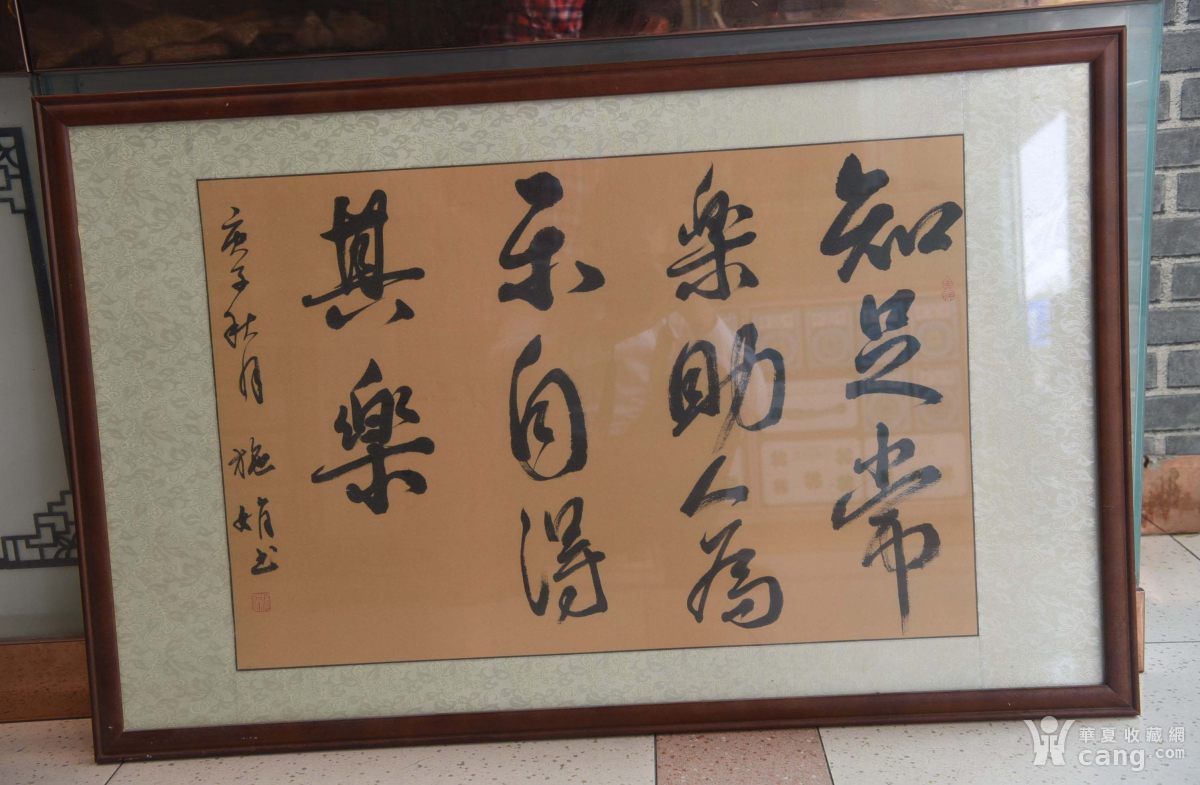 知足常
樂助人為
乐自得
其樂
庚子秋月 施娟书
華夏收藏網
cang.com